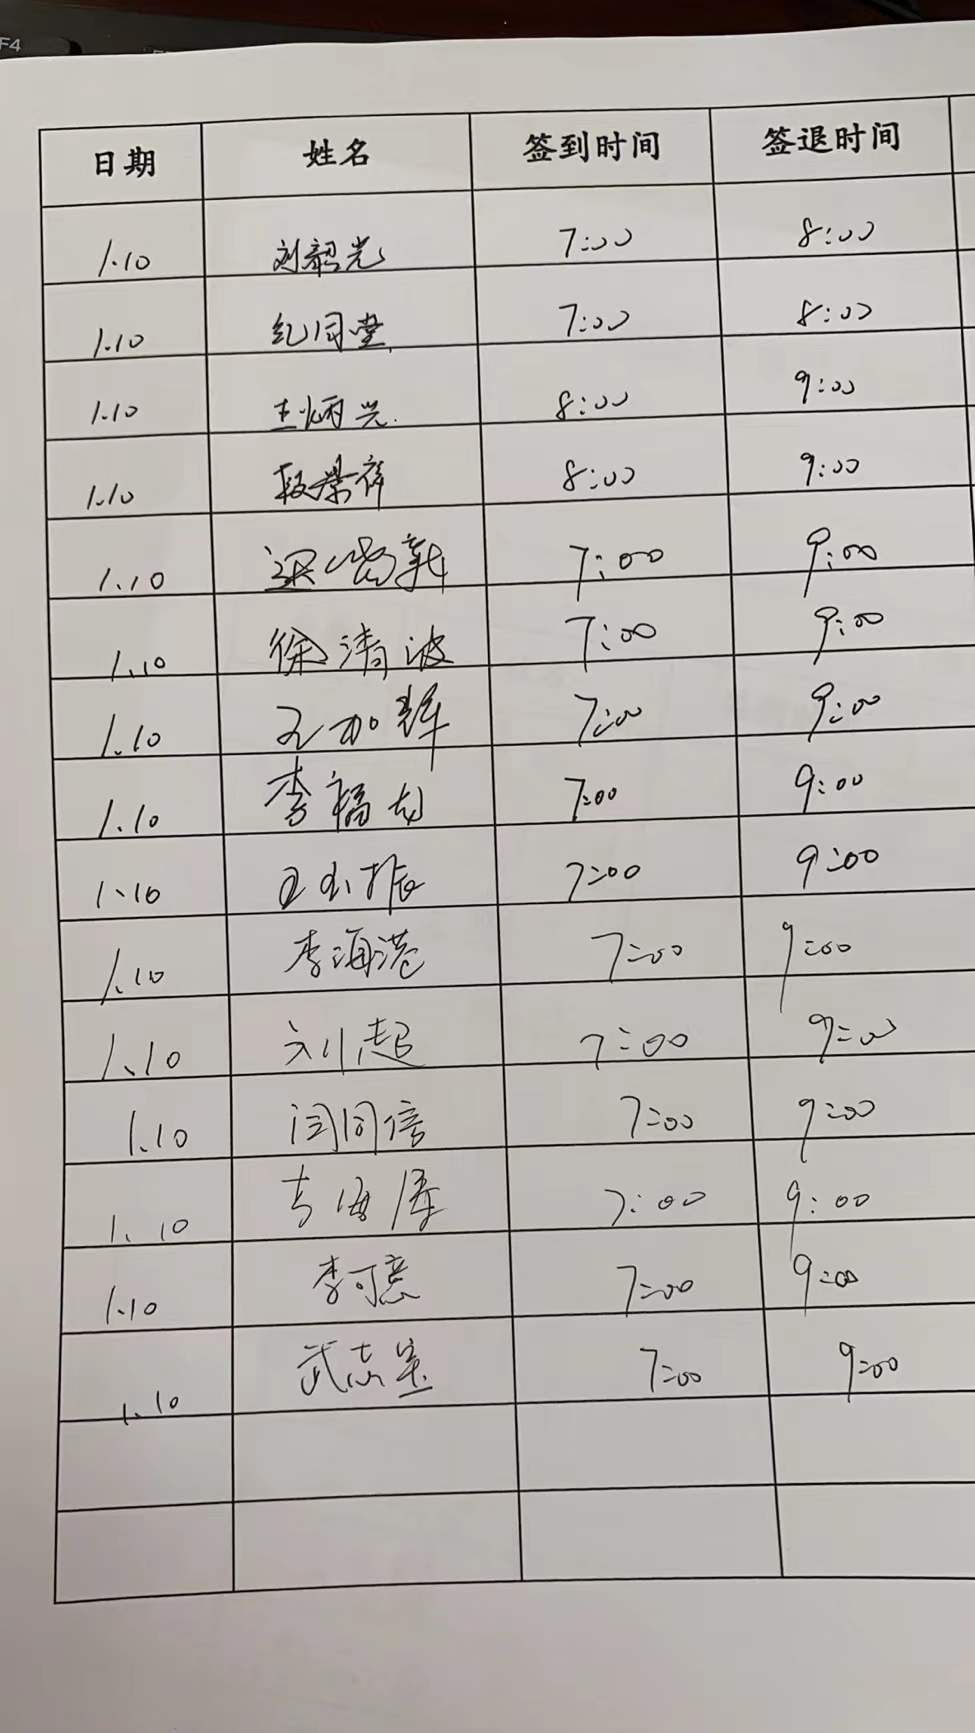 F4
日期 姓名 签到时间 签退时间
1.10 刘韶光 7:00 8:00
1.10 纪同堂 7:00 8:00
1.10 王炳兴 8:00 9:00
1.10 段荣祥 8:00 9:00
1.10 7:00 9:00
1.10 徐清波 7:00 9:00
1.10 王加辉 7:00 9:00
1.10 李福龙 7:00 9:00
1.10 王玉振 7:00 9:00
1.10 李海港 7:00 9:00
1.10 刘超 7:00 9:00
1.10 闫同信 7:00 9:00
1.10 7:00 9:00
1.10 李可意 7:00 9:00
1.10 武志 7:00 9:00